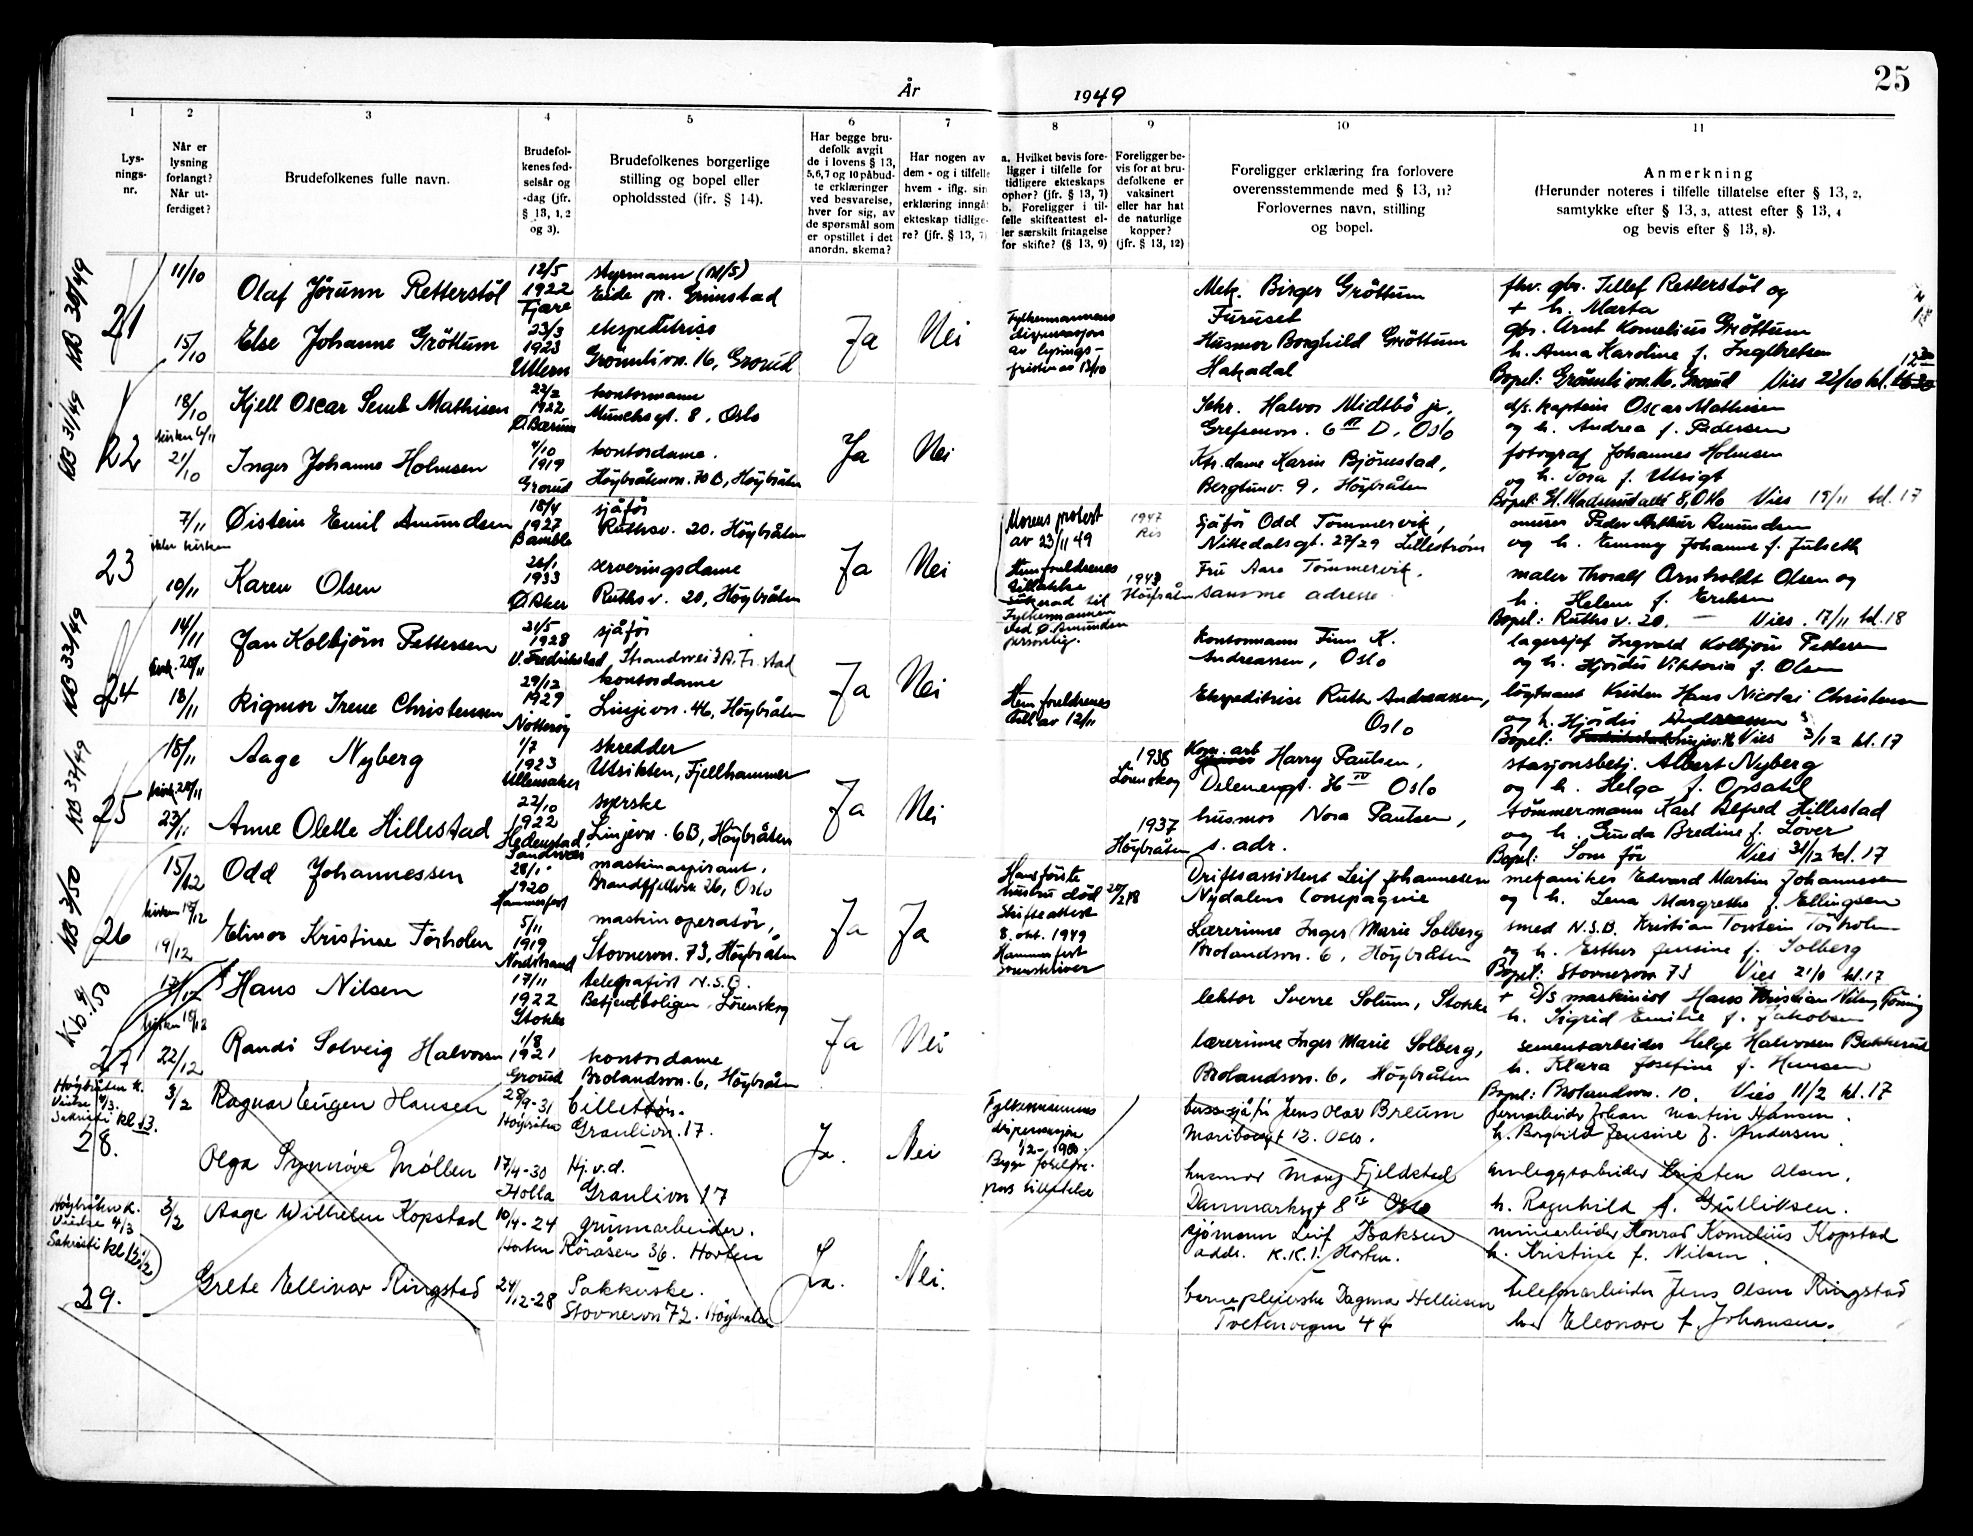 25
År 1949
1 2 3 4 5 6 7 8 9 10 11
Lys-
nings-
nr.
Når er
lysning
forlangt?
Når ut-
ferdiget?
Brudefolkenes fulle navn.
Brudefol-
kenes fød-
selsår og
-dag (jfr.
§ 13, 1, 2
og 3).
Brudefolkenes borgerlige
stilling og bopel eller
opholdssted (jfr. § 14).
Har begge bru-
defolk avgit
de i lovens § 13,
5,6,7 og 10 påbud-
te erklæringer
ved besvarelse,
hver for sig, av
de spørsmål som
er opstillet i det
anordn. skema?
Har nogen av
dem - og i tilfelle
hvem - iflg. sin
erklæring inngå
ekteskap tidlige-
re? (jfr. § 13, 7)
a. Hvilket bevis fore-
ligger i tilfelle for
tidligere ekteskaps
ophør? (jfr. § 13, 7)
b. Foreligger i til-
felle skifteattest el-
ler særskilt fritagelse
for skifte? (§ 13, 9)
Foreligger be-
vis for at bru-
defolkene er
vaksinert
eller har hat
de naturlige
kopper?
(jfr. § 13, 12)
Foreligger erklæring fra forlovere
overensstemmende med § 13, 11?
Forlovernes navn, stilling
og bopel.
Anmerkning
(Herunder noteres i tilfelle tillatelse efter § 13, 2,
samtykke efter § 13, 3, attest efter § 13, 4
og bevis efter § 13, 8).
KB 30/49
21
11/10
15/10
Olaf Jörunn Retterstöl
12/5
1922
Fjære
styrmann (M/S)
Eide pr. Grimstad
Else Johanne Gröttum
23/3
1923
Ullern
ekspeditrise
Grömlivn. 16, Grorud
Ja
Nei
Fylkesmannens
dispensasjon
av lysings-
fristen av 13/10
Mek. Birger Gröttum
Furuset
Husmor Borghild Gröttum
Hakadal
fhv. gbr. Tellef Retterstöl og
+ h. Marta
gbr. Arnt Kornelius Gröttum
h. Anna Karoline f. Ingebretsen
Bopel: Grömlivn. 16, Grorud Vies 22/10 kl.
KB 31/49
22
18/10
kirken 6/11
21/10
Kjell Oscar Semb Mathisen
22/2
1922
Ø. Bærum
kontormann
Munchsgt. 8, Oslo
Inger Johanne Holmsen
4/10
1919
Grorud
kontordame.
Höybråtenvn. 70 B, Höybråten
Ja
Nei
Sekr. Halvor Midtbö jr.
Grefsenvn. 6 III D, Oslo
Ktr.dame Karin Björnstad,
Bergtunv. 9, Höybråten
d/s. kaptein Oscar Mathisen
og h. Andrea f. Pedersen
fotograf Johannes Holmsen
og h. Tora f. Utsigt
Vies 19/11 kl. 17
23
7/11
ikke kirken
10/11
Øistein Emil Amundsen
18/4
1927
Bamble
sjåfór
Ruthsv. 20, Höybråten
Karen Olsen
26/1
1933
Ø. Aker
serveringsdame
Ruths v. 20, Höybråten
Ja
Nei
Morens protest
av 23/11 49
Hun foreldrenes
tillatelse
søknad til
Fylkesmannen
ved Ø. Amundsen
personlig.
1947
Ris
1943
Höybråten
Sjåfór Odd Tommervik,
Nittedalsgt. 27/29 Lilleström
Fru Aase Tommervik.
samme adresse
murer Peder Arthur Amundsen
og h. Emmy Johanne f. Julseth
maler Thoralf Arnholdt Olsen og
h. Helene f. Eriksen
Bopel: Ruths v. 20. — Vies. 17/11 kl. 18
KB 33/49
24
14/11
kirk. 20/11
18/11
Jan Kolbjörn Pettersen
21/5
1928
V. Fredrikstad
sjåfór
Strandvei 3 A. Fr.stad
Rigmor Irene Christensen
29/12
1929
Nötteröy
kontordame
Linjevn. 46, Höybråten
Ja
Nei
Hun foreldrenes
till. av 12/11
kontormann Finn K.
Andreassen, Oslo
Ekspeditrise Ruth Andreassen,
Oslo
lagersjef Ingvald Kolbjörn Pettersen
og h. Hjördis Viktoria f. Olsen
löytnant Kristen Hans Nicolai Christensen
og h. Hjördis Andreassen
Bopel: Vies 3/12 kl. 17
KB 37/49
25
18/11
kirk. 20/11
23/11
Aage Nyberg
1/7
1923
Ullensaker
skredder
Utsikten, Fjellhammer
Anne Olette Hillestad
22/10
1922
Hedenstad,
Sandsvær
syerske
Linjevn. 6B, Höybråten
Ja
Nei
1938
Lörenskog
1937
Höybråten
Kom. arb Harry Paulsen,
Delenenggt. 36 IV Oslo
husmor Nora Paulsen,
s. adr.
stasjonsbetj. Albert Nyberg
og h. Helga f. Opsahl
tömmermann Karl Alfred Hillestad
og h. Gunda Bredine f. Lover
Bopel: Som för Vies 31/12 kl. 17
KB 3/50
26
15/12
kirken 18/12
19/12
Odd Johannessen
28/1
1920
Hammerfest
maskinaspirant,
Brandfjellvn. 26, Oslo
Elinor Kristine Törholen
5/11
1919
Nordstrand
maskinoperatör,
Stovnervn. 73, Höybråten
Ja
Ja
Hans förste
hustru död 20/2 48
Skifteattest
8. okt. 1949
Hammerfest
sorenskriver
Driftsassistent Leif Johannesen
Nydalens Compagnie
Lærerinne Inger Marie Solberg
Brolandsvn. 6, Höybråten
mekaniker Edvard Martin Johannessen
og h. Lena Margrethe f. Ellingsen
smed N.S.B. Kristian Torstein Törholen
og h. Esther Jensine f. Solberg
Bopel: Stovnervn 73 Vies 21/1 kl. 17
Kb. 9/50
27
17/12
kirken 18/12
22/12
Hans Nilsen
17/11
1922
Stokke
telegrafist N.S.B.
Betjentboligen, Lörenskog
Randi Solveig Halvorsen
1/8
1921
Grorud
kontordame
Brolandsvn. 6, Höybråten
Ja
Nei
lektor Sverre Solum, Stokke
lærerinne Inger Marie Solberg,
Brolandsvn. 6, Höybråten
+ D/S maskinist Hans Kristian Nilsen
h. Sigrid Emilie f. Jakobsen
sementarbeider Helge Halvorsen Bakkerud
h. Klara Josefine f. Hansen
Bopel: Brolandsvn. 10. Vies 11/2 kl. 17
Höybråten k.
Viedse 4/3.
Sakristi kl 13.
28.
3/2
Ragnar Eugen Hansen
28/9-31
Höybråten
billettör.
Granlivn. 17.
Olga Synnöve Möllen
17/4-30
Holla
Hj. v. d.
Granlivn 17
Ja.
Nei
Fylkesmannens
dispensasjon
1/2 - 1950.
Begge foreldre-
pars tillatelse
bussjåfór Jens Olav Breum
Maribogt 12. Oslo.
husmor Mary Fjeldstad
Danmarksgt 8 IV Oslo
jernarbeider Johan Martin Hansen.
h. Borghild Jensine f. Andersen
anleggsarbeider Kristen Olsen.
h. Ragnhild f. Gulliksen.
Höybråten k.
Viedse 4/3
Sakristi kl 13 1/2
29.
3/2
Aage Wilhelm Kopstad
10/4-24
Horten
grunnarbeider.
Röråsen 36. Horten
Grete Ellinor Ringstad
24/12-28
Pakkerske.
Stovnervn 72. Höybråten
Ja.
Nei.
sjömann Leif Isaksen
addr. K.K.I. Horten.
barnepleierske Dagmar Helliesen
Tvetenvegen 44
minearbeider Konrad Kornelius Kopstad
h. Kristine f. Nilsen.
telefonarbeider Jens Olsen Ringstad
h. Eleonore f. Johansen.